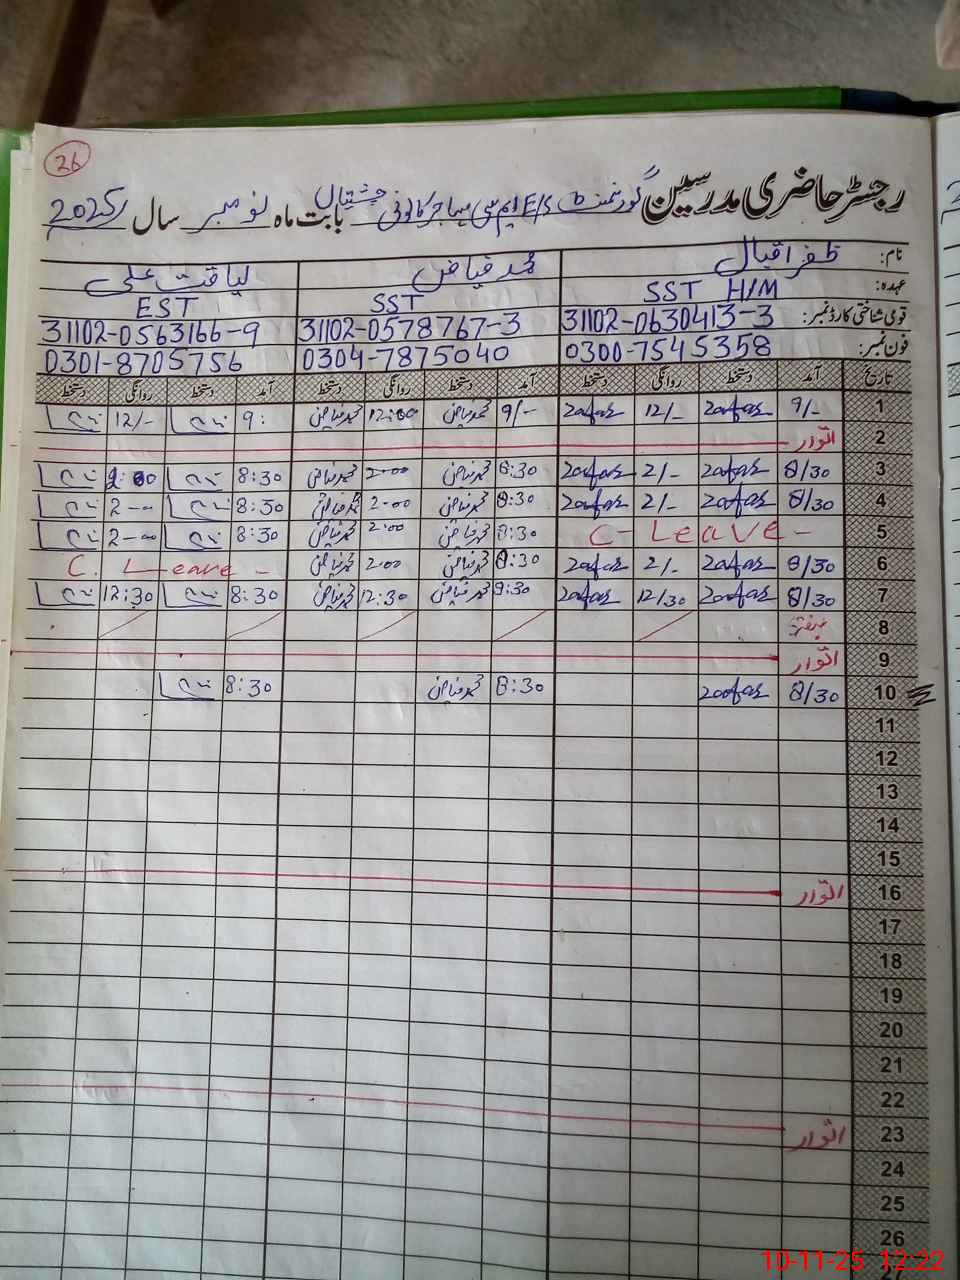 26
رجسٹر حاضری مدرسین گورنمنٹ E/S ایم سی مہاجر کالونی چشتیاں بابت ماہ نومبر سال 2025ء
نام: ظفر اقبال محمد فیاض لیاقت علی
عہدہ: SST H/M SST EST
قومی شناختی کارڈ نمبر: 31102-0630413-3 31102-0578767-3 31102-0563166-9
فون نمبر: 0300-7545358 0304-7875040 0301-8705756
تاریخ آمد دستخط روانگی دستخط آمد دستخط روانگی دستخط آمد دستخط روانگی دستخط
1 9/- Zafar 12/- Zafar 9/- محمد فیاض 12:00 محمد فیاض 9: 12/-
2 اتوار
3 8/30 Zafar 2/- Zafar 8:30 محمد فیاض 2-00 محمد فیاض 8:30 2:00
4 8/30 Zafar 2/- Zafar 8:30 محمد فیاض 2-00 محمد فیاض 8:30 2-00
5 C- Leave - 8:30 محمد فیاض 2:00 محمد فیاض 8:30 2-00
6 8/30 Zafar 2/- Zafar 8:30 محمد فیاض 2:00 محمد فیاض C. Leave -
7 8/30 Zafar 12/30 Zafar 8:30 محمد فیاض 12:30 محمد فیاض 8:30 12:30
8 ہفتہ
9 اتوار
10 8/30 Zafar 8:30 محمد فیاض 8:30
11
12
13
14
15
16 اتوار
17
18
19
20
21
22
23 اتوار
24
25
26
10-11-25 12:22